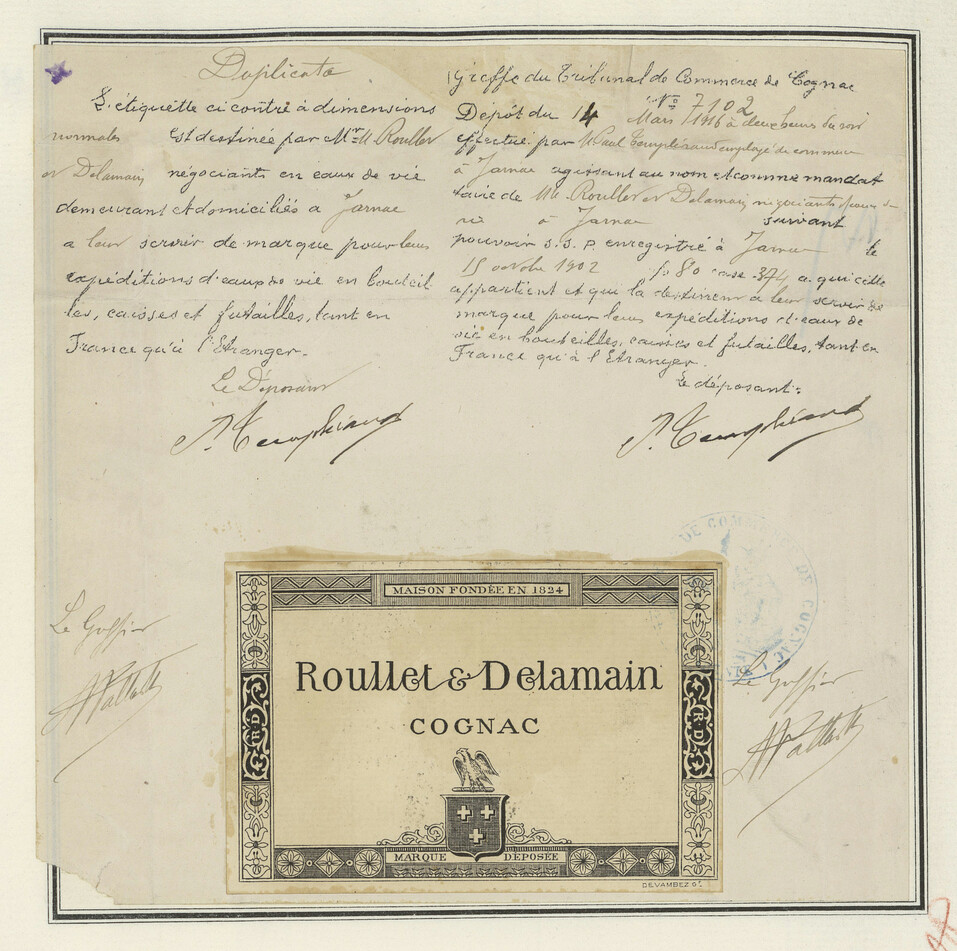 Duplicata
L'étiquette ci contre à dimensions
normales est destinée par MM Roullet
et Delamain négociants en eaux de vie
demeurant et domiciliés à Jarnac
à leur servir de marque pour leurs
expéditions d'eaux de vie en bouteil
les, caisses et futailles, tant en
France qu'à l'Etranger.
Le Déposant
Greffe du Tribunal de Commerce de Cognac
N° 7102
Dépôt du 14 Mars 1916 à deux heures du soir
effectué par Paul employé de commerce
à Jarnac agissant au nom et comme mandat
taire de MM. Roullet et Delamain négociants eaux de
vie à Jarnac suivant
pouvoir s.s.p. enregistré à Jarnac le
15 octobre 1902 fo 80 case 374 a qui cette
appartient et qui la destinent à leur servir de
marque pour leurs expéditions d'eaux de
vie en bouteilles, caisses et futailles, tant en
France qu'à l'Etranger.
Le déposant:
DE COMMERCE DE COGNAC
Le Greffier
Le Greffier
MAISON FONDÉE EN 1824
Roullet & Delamain
COGNAC
RD
RD
MARQUE DÉPOSÉE
DEVAMBEZ Gr.